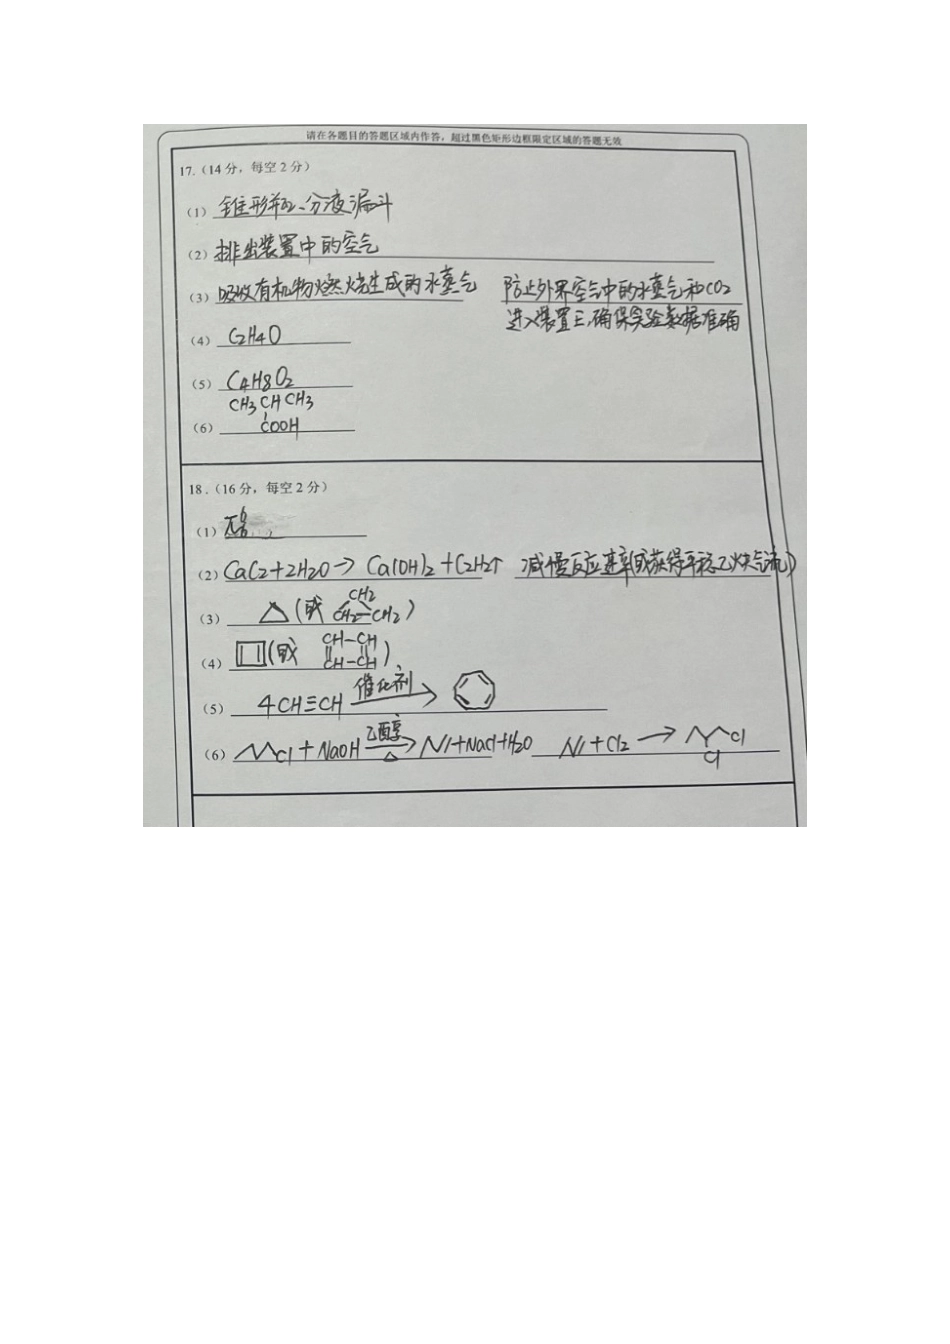 请在各题目的答题区域内作答，超过黑色矩形边框限定区域的答题无效
17.（14分，每空2分）
（1）锥形瓶、分液漏斗
（2）排出装置中的空气
（3）吸收有机物燃烧生成的水蒸气 防止外界空气中的水蒸气和CO2
进入装置E,确保实验数据准确
（4）C2H4O
（5）C4H8O2
CH3CHCH3
（6）COOH
18.（16分，每空2分）
（1）
（2）CaC2+2H2O→Ca(OH)2+C2H2↑ 减慢反应速率(或获得平稳乙炔气流)
（3）△(或 CH2
CH2—CH2)
（4）□(或 CH-CH
CH-CH)
（5）4CH≡CH 催化剂→
（6）Cl+NaOH 乙醇△→ +NaCl+H2O +Cl2→ Cl
Cl